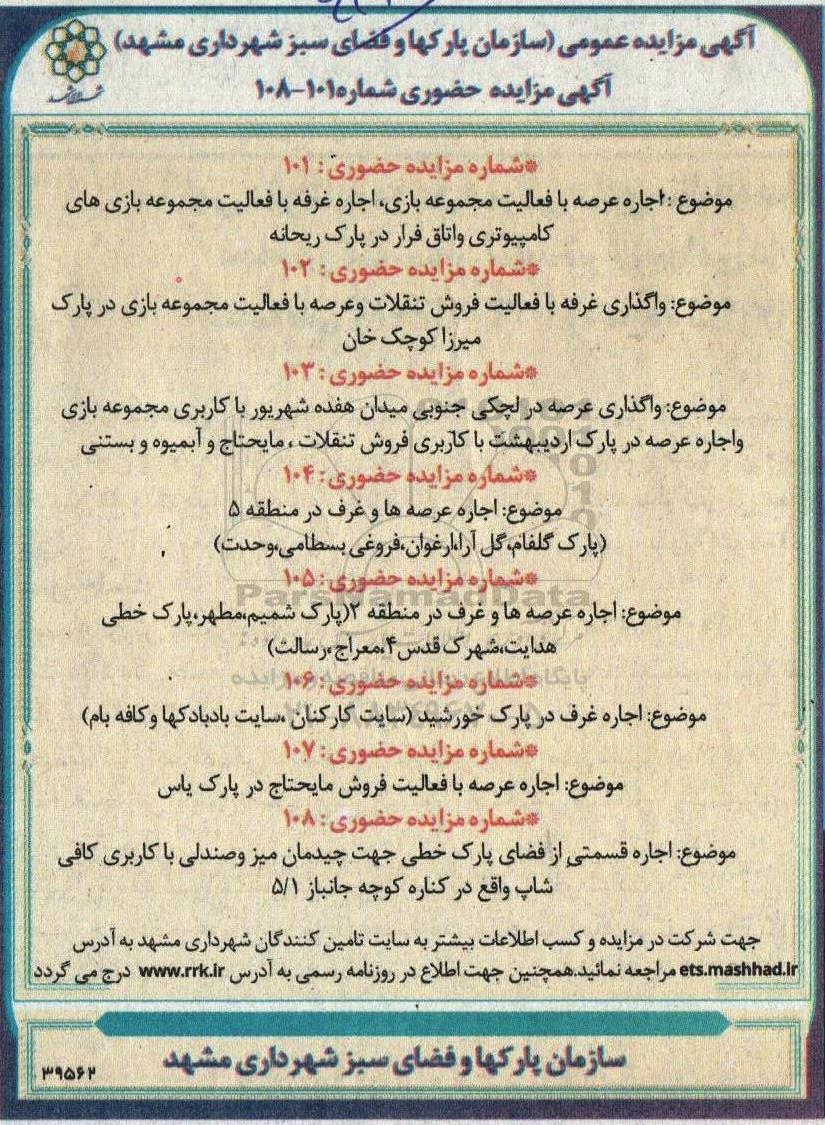 آگهی مزایده عمومی (سازمان پارکها و فضای سبز شهرداری مشهد)
آگهی مزایده حضوری شماره۱۰۱-۱۰۸
*شماره مزایده حضوری: ۱۰۱
موضوع :اجاره عرصه با فعالیت مجموعه بازی، اجاره غرفه با فعالیت مجموعه بازی های
کامپیوتری واتاق فرار در پارک ریحانه
*شماره مزایده حضوری: ۱۰۲
موضوع: واگذاری غرفه با فعالیت فروش تنقلات وعرصه با فعالیت مجموعه بازی در پارک
میرزا کوچک خان
*شماره مزایده حضوری: ۱۰۳
موضوع: واگذاری عرصه در لچکی جنوبی میدان هفده شهریور با کاربری مجموعه بازی
واجاره عرصه در پارک اردیبهشت با کاربری فروش تنقلات ، مایحتاج و آبمیوه و بستنی
*شماره مزایده حضوری: ۱۰۴
موضوع: اجاره عرصه ها و غرف در منطقه ۵
(پارک گلفام،گل آرا،ارغوان،فروغی بسطامی،وحدت)
*شماره مزایده حضوری: ۱۰۵
ParsNamadData
موضوع: اجاره عرصه ها و غرف در منطقه ۲(پارک شمیم،مطهر،پارک خطی
هدایت،شهرک قدس۴،معراج ،رسالت)
*شماره مزایده حضوری: ۱۰۶
موضوع: اجاره غرف در پارک خورشید (سایت کارکنان ،سایت بادبادکها وکافه بام)
*شماره مزایده حضوری: ۱۰۷
موضوع: اجاره عرصه با فعالیت فروش مایحتاج در پارک یاس
*شماره مزایده حضوری: ۱۰۸
موضوع: اجاره قسمتی از فضای پارک خطی جهت چیدمان میز وصندلی با کاربری کافی
شاپ واقع در کناره کوچه جانباز ۵/۱
جهت شرکت در مزایده و کسب اطلاعات بیشتر به سایت تامین کنندگان شهرداری مشهد به آدرس
ets.mashhad.ir مراجعه نمائید.همچنین جهت اطلاع در روزنامه رسمی به آدرس www.rrk.ir درج می گردد
سازمان پارکها و فضای سبز شهرداری مشهد
۳۹۵۶۲